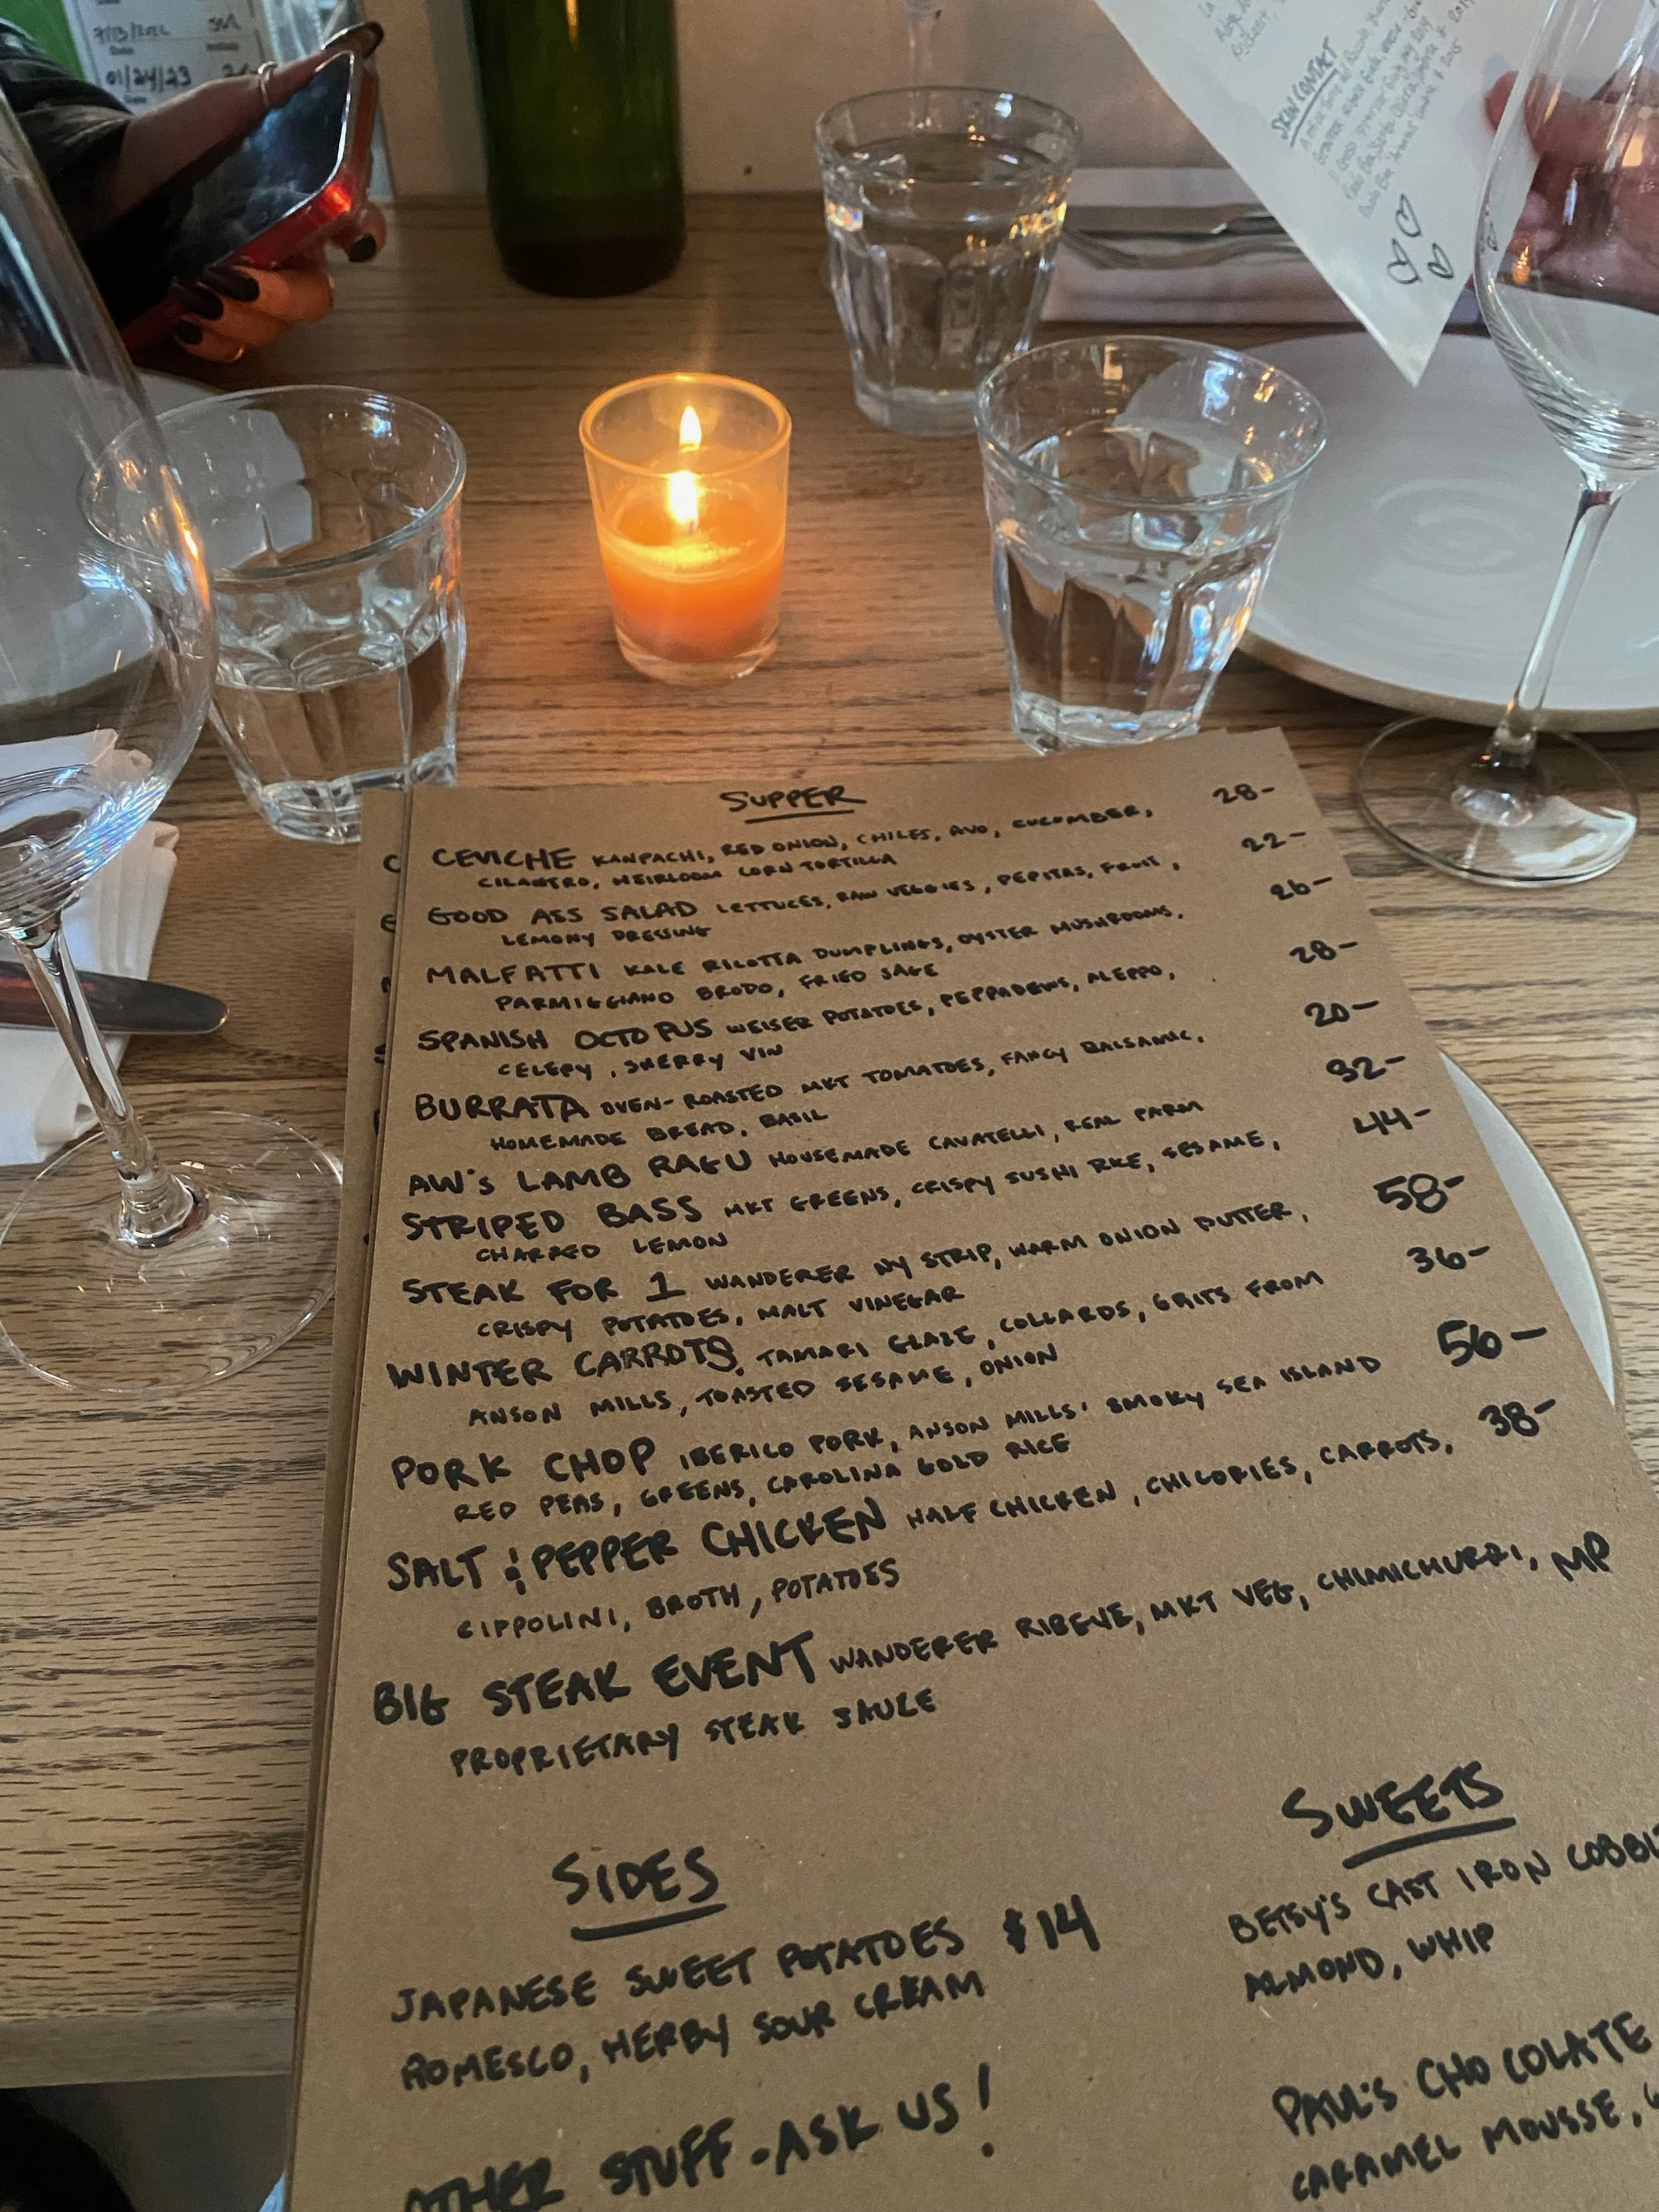 7/13/2022
01/24/23
SKIN CONTACT
SUPPER
CEVICHE KANPACHI, RED ONION, CHILES, AVO, CUCUMBER, 28-
CILANTRO, HEIRLOOM CORN TORTILLA
GOOD ASS SALAD LETTUCES, RAW VEGGIES, PEPITAS, FRUIT, 22-
LEMONY DRESSING
MALFATTI KALE RICOTTA DUMPLINGS, OYSTER MUSHROOMS, 26-
PARMIGGIANO BRODO, FRIED SAGE
SPANISH OCTOPUS WEISER POTATOES, PEPPADEWS, ALEPPO, 28-
CELERY, SHERRY VIN
BURRATA OVEN-ROASTED MKT TOMATOES, FANCY BALSAMIC, 20-
HOMEMADE BREAD, BASIL
AW'S LAMB RAGU HOUSEMADE CAVATELLI, REAL PARM 32-
STRIPED BASS MKT GREENS, CRISPY SUSHI RICE, SESAME, 44-
CHARRED LEMON
STEAK FOR 1 WANDERER NY STRIP, WARM ONION BUTTER, 58-
CRISPY POTATOES, MALT VINEGAR
WINTER CARROTS, TAMARI GLAZE, COLLARDS, GRITS FROM 36-
ANSON MILLS, TOASTED SESAME, ONION
PORK CHOP IBERICO PORK, ANSON MILLS' SMOKY SEA ISLAND 56-
RED PEAS, GREENS, CAROLINA GOLD RICE
SALT & PEPPER CHICKEN HALF CHICKEN, CHICORIES, CARROTS, 38-
CIPPOLINI, BROTH, POTATOES
BIG STEAK EVENT WANDERER RIBEYE, MKT VEG, CHIMICHURRI, MP
PROPRIETARY STEAK SAUCE
SIDES
JAPANESE SWEET POTATOES $14
ROMESCO, HERBY SOUR CREAM
OTHER STUFF - ASK US!
SWEETS
BETSY'S CAST IRON
ALMOND, WHIP
PAUL'S CHOCOLATE
CARAMEL MOUSSE,